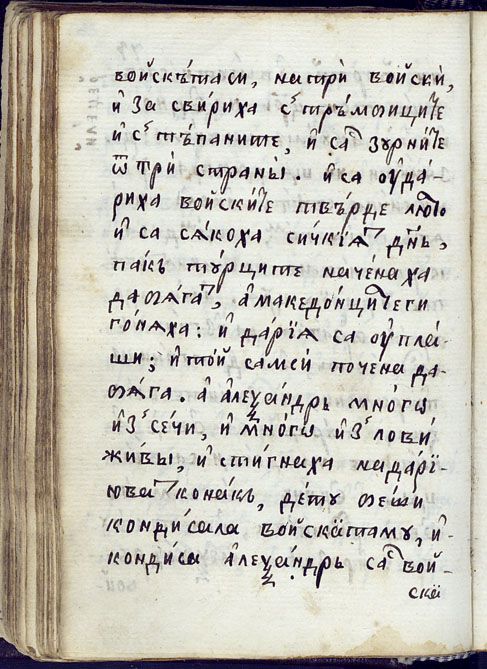 войскътаси, натрѝ войскѝ,
и҆ засвириха с̾ тръмбищите
и҆ с̾ тъпаните, и҆ са зурните
ѿ три страны̀. и҆ са ѹ҆да́-
риха войските твъ́рде лю́то
и҆ са сѧкоха сичкїѧт дн҃ь,
пакъ турците начена́ха
да бѧгат, а҆ македонците ги
го́нѧха: и҆ да́рїѧ са ѹ҆пла́-
ши; и҆ то́й самси почена да-
бѧга. а҆ а҆леѯа́ндръ мно́гѡ
и҆з̾ се́чи, и҆ мно́гѡ и҆з̾лови́
жи́вы, и҆ стигнаха на да́рї-
юват конакъ, де́ту беши
конди́сала войскатаму, и҆-
конди́са а҆леѯа́ндръ сас вой-
ска